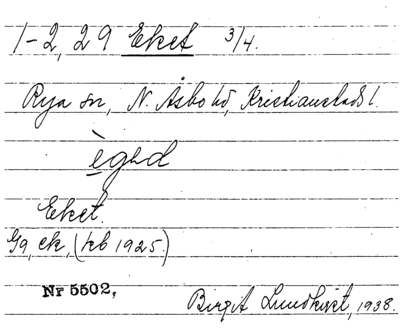 1-2, 29 Eket 3/4.
Rya sn, N. Åsbo hd, Kristianstads l.
Eket.
Gg, ek, (kb 1925.)
Nr 5502,
Birgit Lundkvist, 1938.